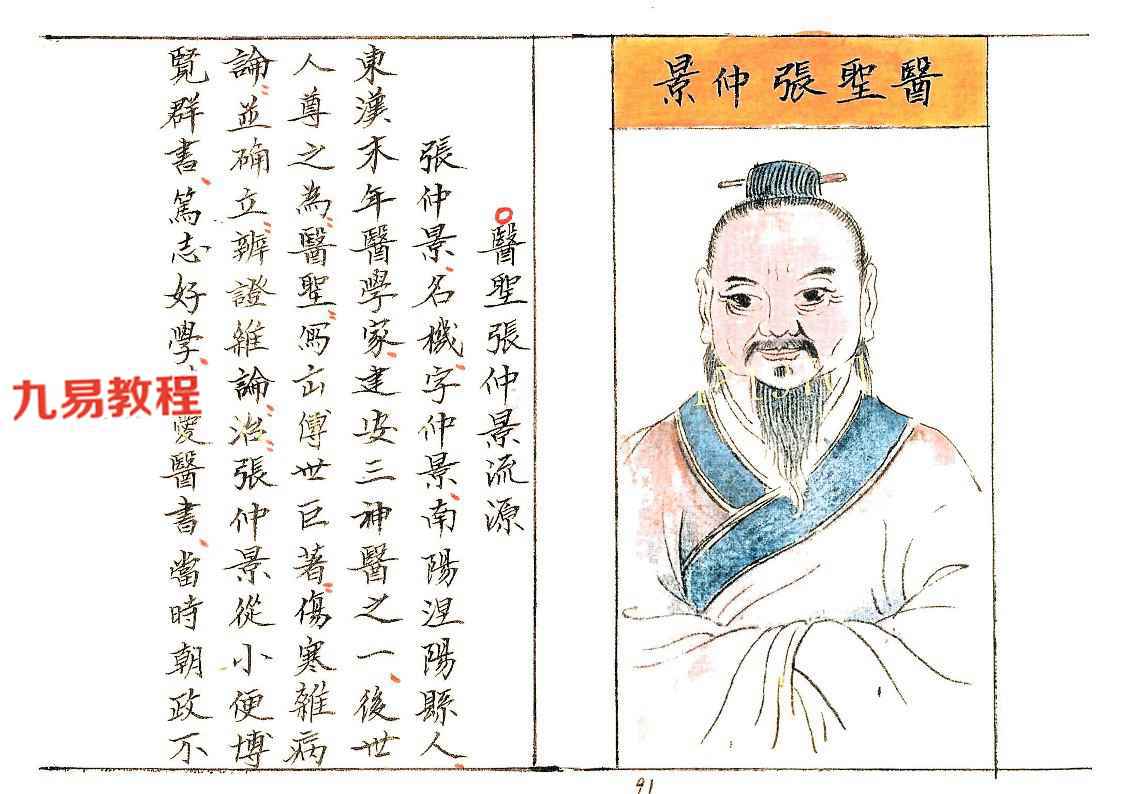 醫聖張仲景
醫聖張仲景流源
張仲景、名機、字仲景、南陽涅陽縣人、
東漢末年醫學家、建安三神醫之一、後世
人尊之為醫聖寫出傳世巨著傷寒雜病
論並确立辨證雜論治張仲景從小便博
覽群書、篤志好學、愛醫書、當時朝政不
九易教程
91